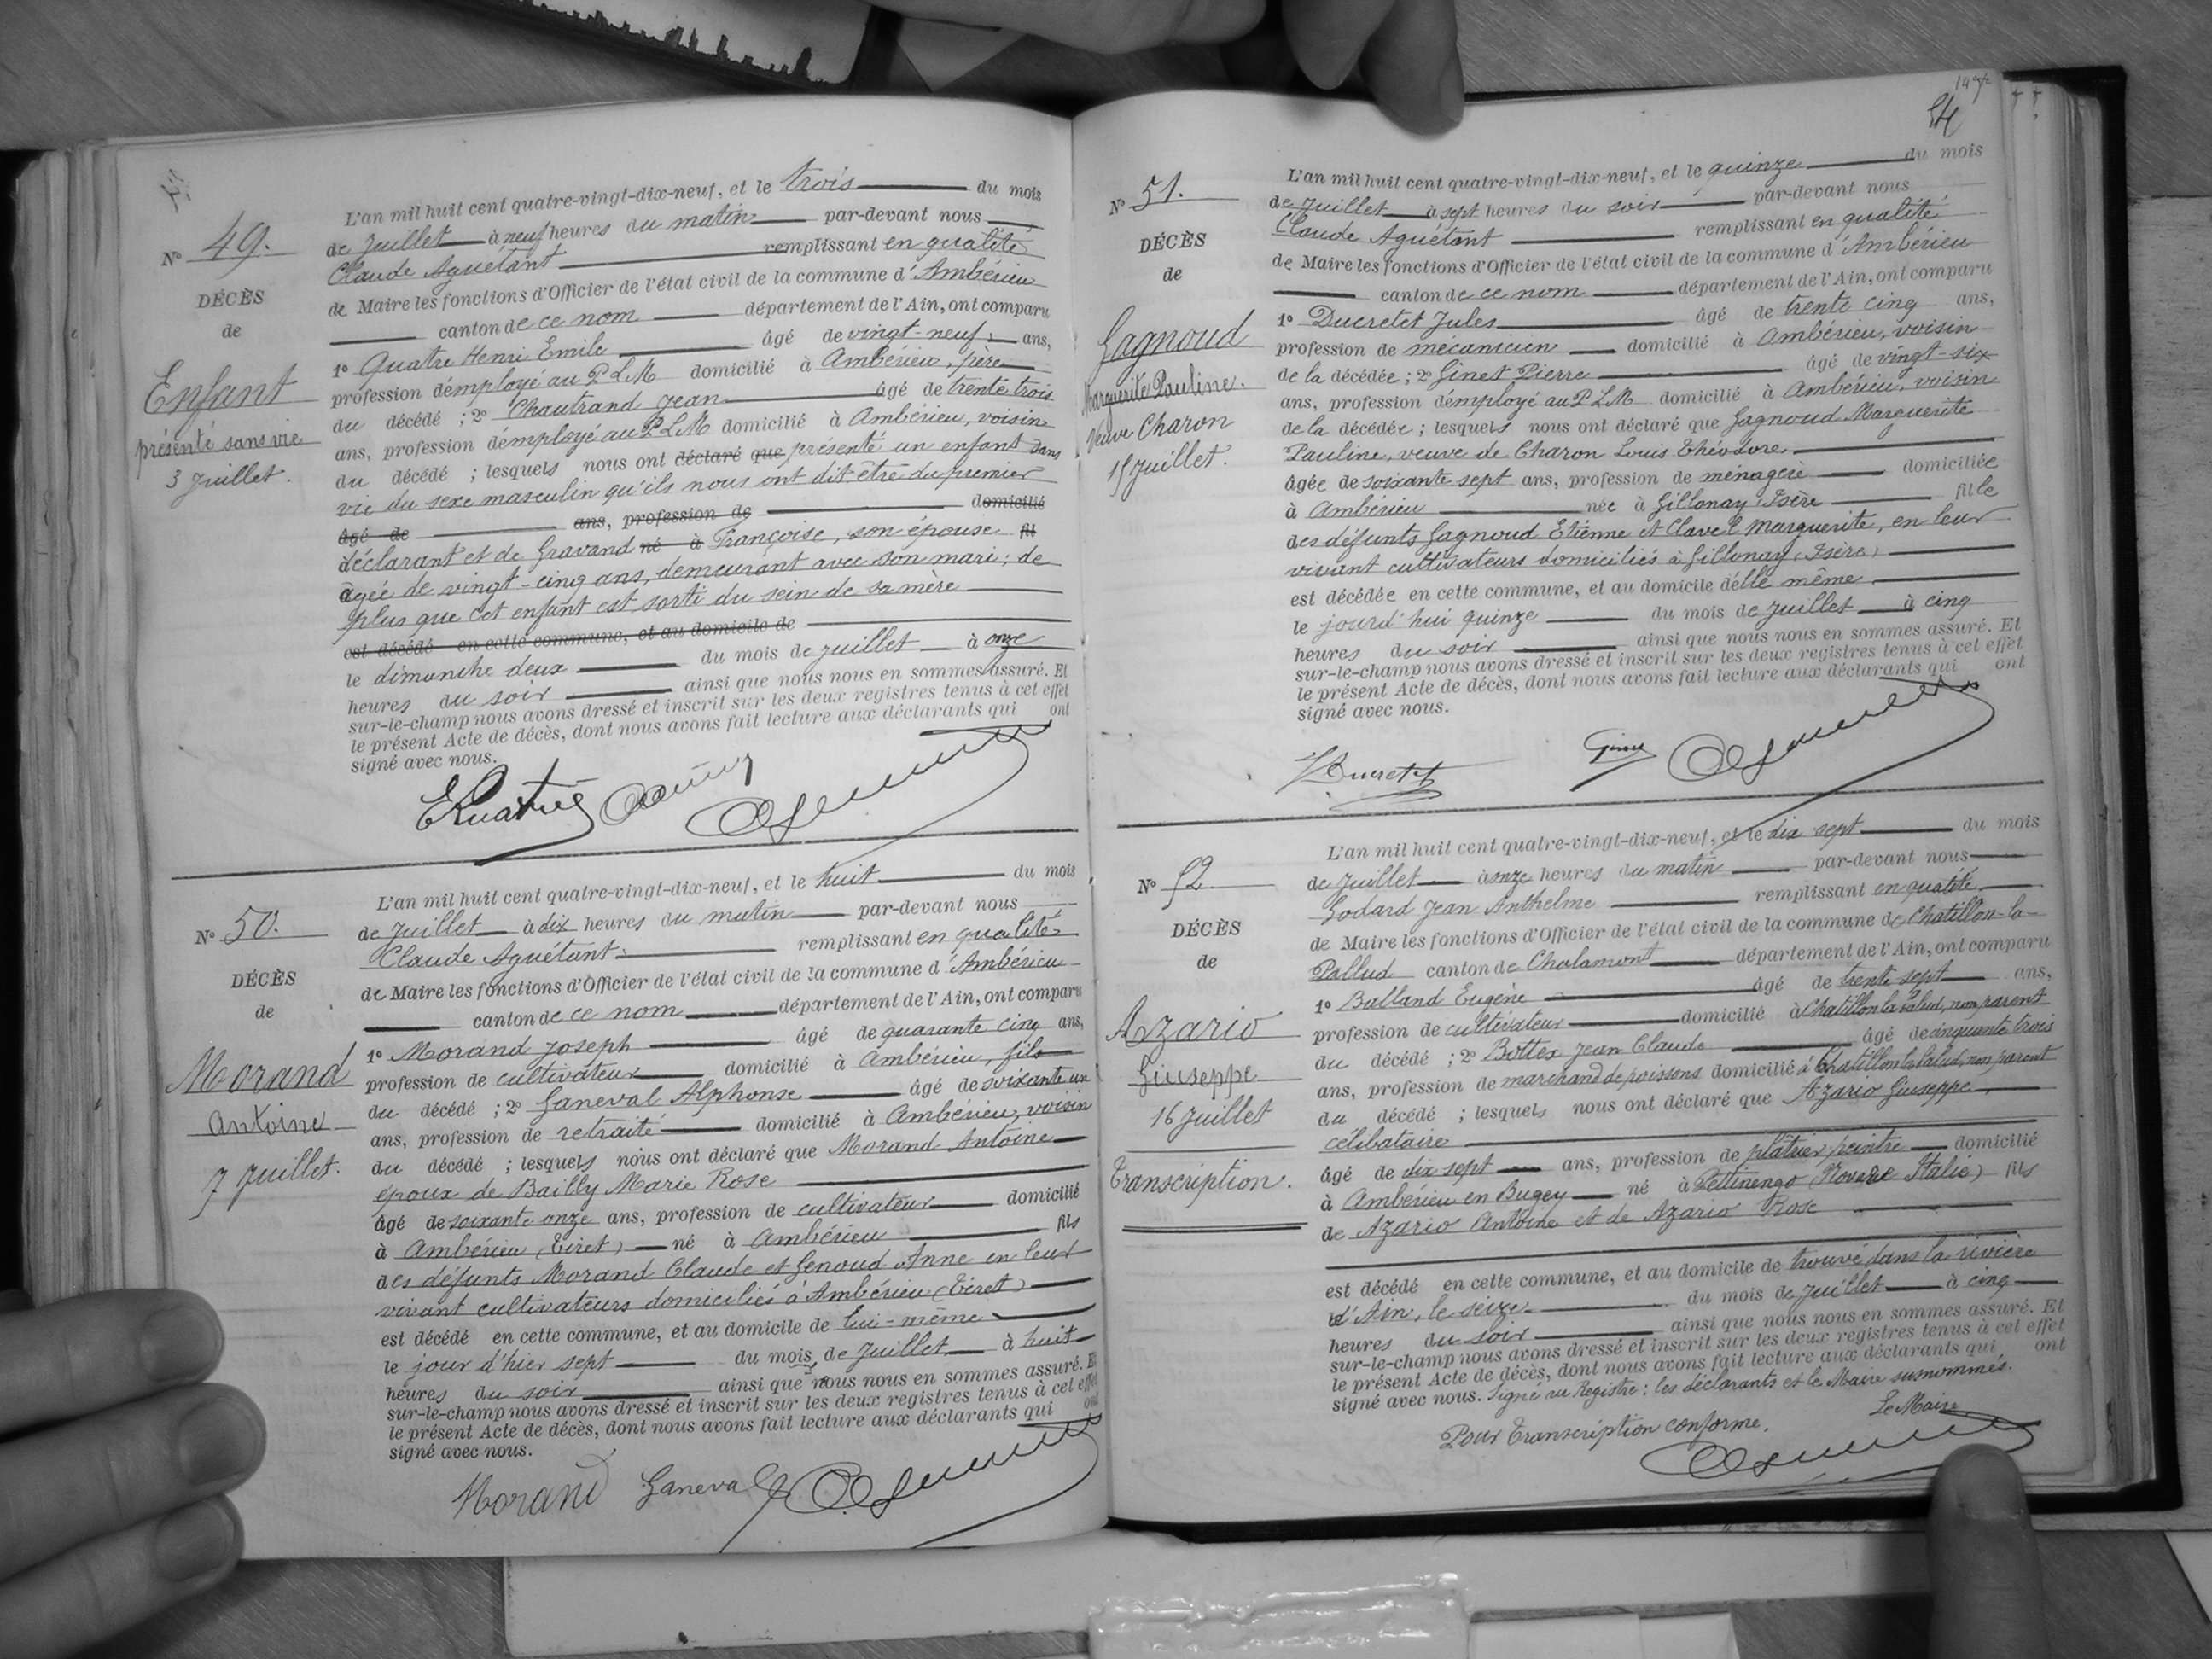 N° 49.
DÉCÈS
de
Enfant
présenté sans vie
3 Juillet.
L'an mil huit cent quatre-vingt-dix-neuf, et le trois du mois
de Juillet à neuf heures du matin par-devant nous
Claude Aguétant remplissant en qualité
de Maire les fonctions d'Officier de l'état civil de la commune d'Ambérieu
canton de ce nom département de l'Ain, ont comparu
1° Quatre Henri Emile âgé de vingt-neuf ans,
profession d'employé au P.L.M domicilié à Ambérieu, père
du décédé ; 2° Chautrand Jean âgé de trente trois
ans, profession d'employé au P.L.M domicilié à Ambérieu, voisin
du décédé ; lesquels nous ont déclaré que présenté un enfant sans
vie du sexe masculin qu'ils nous ont dit être du premier
âgé de ans, profession de domicilié
déclarant et de Gravand né à Françoise, son épouse fil
âgée de vingt-cinq ans, demeurant avec son mari; de
plus que cet enfant est sorti du sein de sa mère
est décédé en cette commune, et au domicile de
le dimanche deux du mois de Juillet à onze
heures du soir ainsi que nous nous en sommes assuré. Et
sur-le-champ nous avons dressé et inscrit sur les deux registres tenus à cet effet
le présent Acte de décès, dont nous avons fait lecture aux déclarants qui ont
signé avec nous.
N° 50.
DÉCÈS
de
Morand
Antoine
7 Juillet.
L'an mil huit cent quatre-vingt-dix-neuf, et le huit du mois
de Juillet à dix heures du matin par-devant nous
Claude Aguétant remplissant en qualité
de Maire les fonctions d'Officier de l'état civil de la commune d'Ambérieu
canton de ce nom département de l'Ain, ont comparu
1° Morand Joseph âgé de quarante cinq ans,
profession de cultivateur domicilié à Ambérieu, fils
du décédé ; 2° Ganeval Alphonse âgé de soixante un
ans, profession de retraité domicilié à Ambérieu, voisin
du décédé ; lesquels nous ont déclaré que Morand Antoine
époux de Bailly Marie Rose
âgé de soixante onze ans, profession de cultivateur domicilié
à Ambérieu (Tiret) né à Ambérieu fils
des défunts Morand Claude et Genoud Anne en leur
vivant cultivateurs domiciliés à Ambérieu (Tiret)
est décédé en cette commune, et au domicile de lui-même
le jour d'hier sept du mois de Juillet à huit
heures du soir ainsi que nous nous en sommes assuré. Et
sur-le-champ nous avons dressé et inscrit sur les deux registres tenus à cet effet
le présent Acte de décès, dont nous avons fait lecture aux déclarants qui ont
signé avec nous.
Morand Ganeval
54
N° 51.
DÉCÈS
de
Gagnoud
Marguerite Pauline.
Veuve Charon
15 Juillet.
L'an mil huit cent quatre-vingt-dix-neuf, et le quinze du mois
de Juillet à sept heures du soir par-devant nous
Claude Aguétant remplissant en qualité
de Maire les fonctions d'Officier de l'état civil de la commune d'Ambérieu
canton de ce nom département de l'Ain, ont comparu
1° Ducretet Jules âgé de trente cinq ans,
profession de mécanicien domicilié à Ambérieu, voisin
de la décédée ; 2° Ginet Pierre âgé de vingt-six
ans, profession d'employé au P.L.M domicilié à Ambérieu, voisin
de la décédée ; lesquels nous ont déclaré que Gagnoud Marguerite
Pauline, veuve de Charon Louis Théodore,
âgée de soixante sept ans, profession de ménagère domiciliée
à Ambérieu née à Gillonay, Isère fille
des défunts Gagnoud Etienne et Clavel Marguerite, en leur
vivant cultivateurs domiciliés à Gillonay (Isère)
est décédée en cette commune, et au domicile d'elle même
le jourd'hui quinze du mois de Juillet à cinq
heures du soir ainsi que nous nous en sommes assuré. Et
sur-le-champ nous avons dressé et inscrit sur les deux registres tenus à cet effet
le présent Acte de décès, dont nous avons fait lecture aux déclarants qui ont
signé avec nous.
J Ducretet
N° 52
DÉCÈS
de
Azario
Giuseppe
16 Juillet
Transcription.
L'an mil huit cent quatre-vingt-dix-neuf, et le dix sept du mois
de Juillet à onze heures du matin par-devant nous
Godard Jean Anthelme remplissant en qualité
de Maire les fonctions d'Officier de l'état civil de la commune de Chatillon-la-
Pallud canton de Chalamont département de l'Ain, ont comparu
1° Balland Eugène âgé de trente sept ans,
profession de cultivateur domicilié à Chatillon la Palud, non parent
du décédé ; 2° Bottex Jean Claude âgé de cinquante trois
ans, profession de marchand de poissons domicilié à Chatillon la Palud, non parent
du décédé ; lesquels nous ont déclaré que Azario Giuseppe
célibataire
âgé de dix sept ans, profession de plâtrier peintre domicilié
à Ambérieu en Bugey né à Pettinengo (Novare Italie) fils
de Azario Antoine et de Azario Rose
est décédé en cette commune, et au domicile de trouvé dans la rivière
d'Ain, le seize du mois de Juillet à cinq
heures du soir ainsi que nous nous en sommes assuré. Et
sur-le-champ nous avons dressé et inscrit sur les deux registres tenus à cet effet
le présent Acte de décès, dont nous avons fait lecture aux déclarants qui ont
signé avec nous. Signé au Registre : les déclarants et le Maire susnommés.
Pour Transcription conforme.
Le Maire